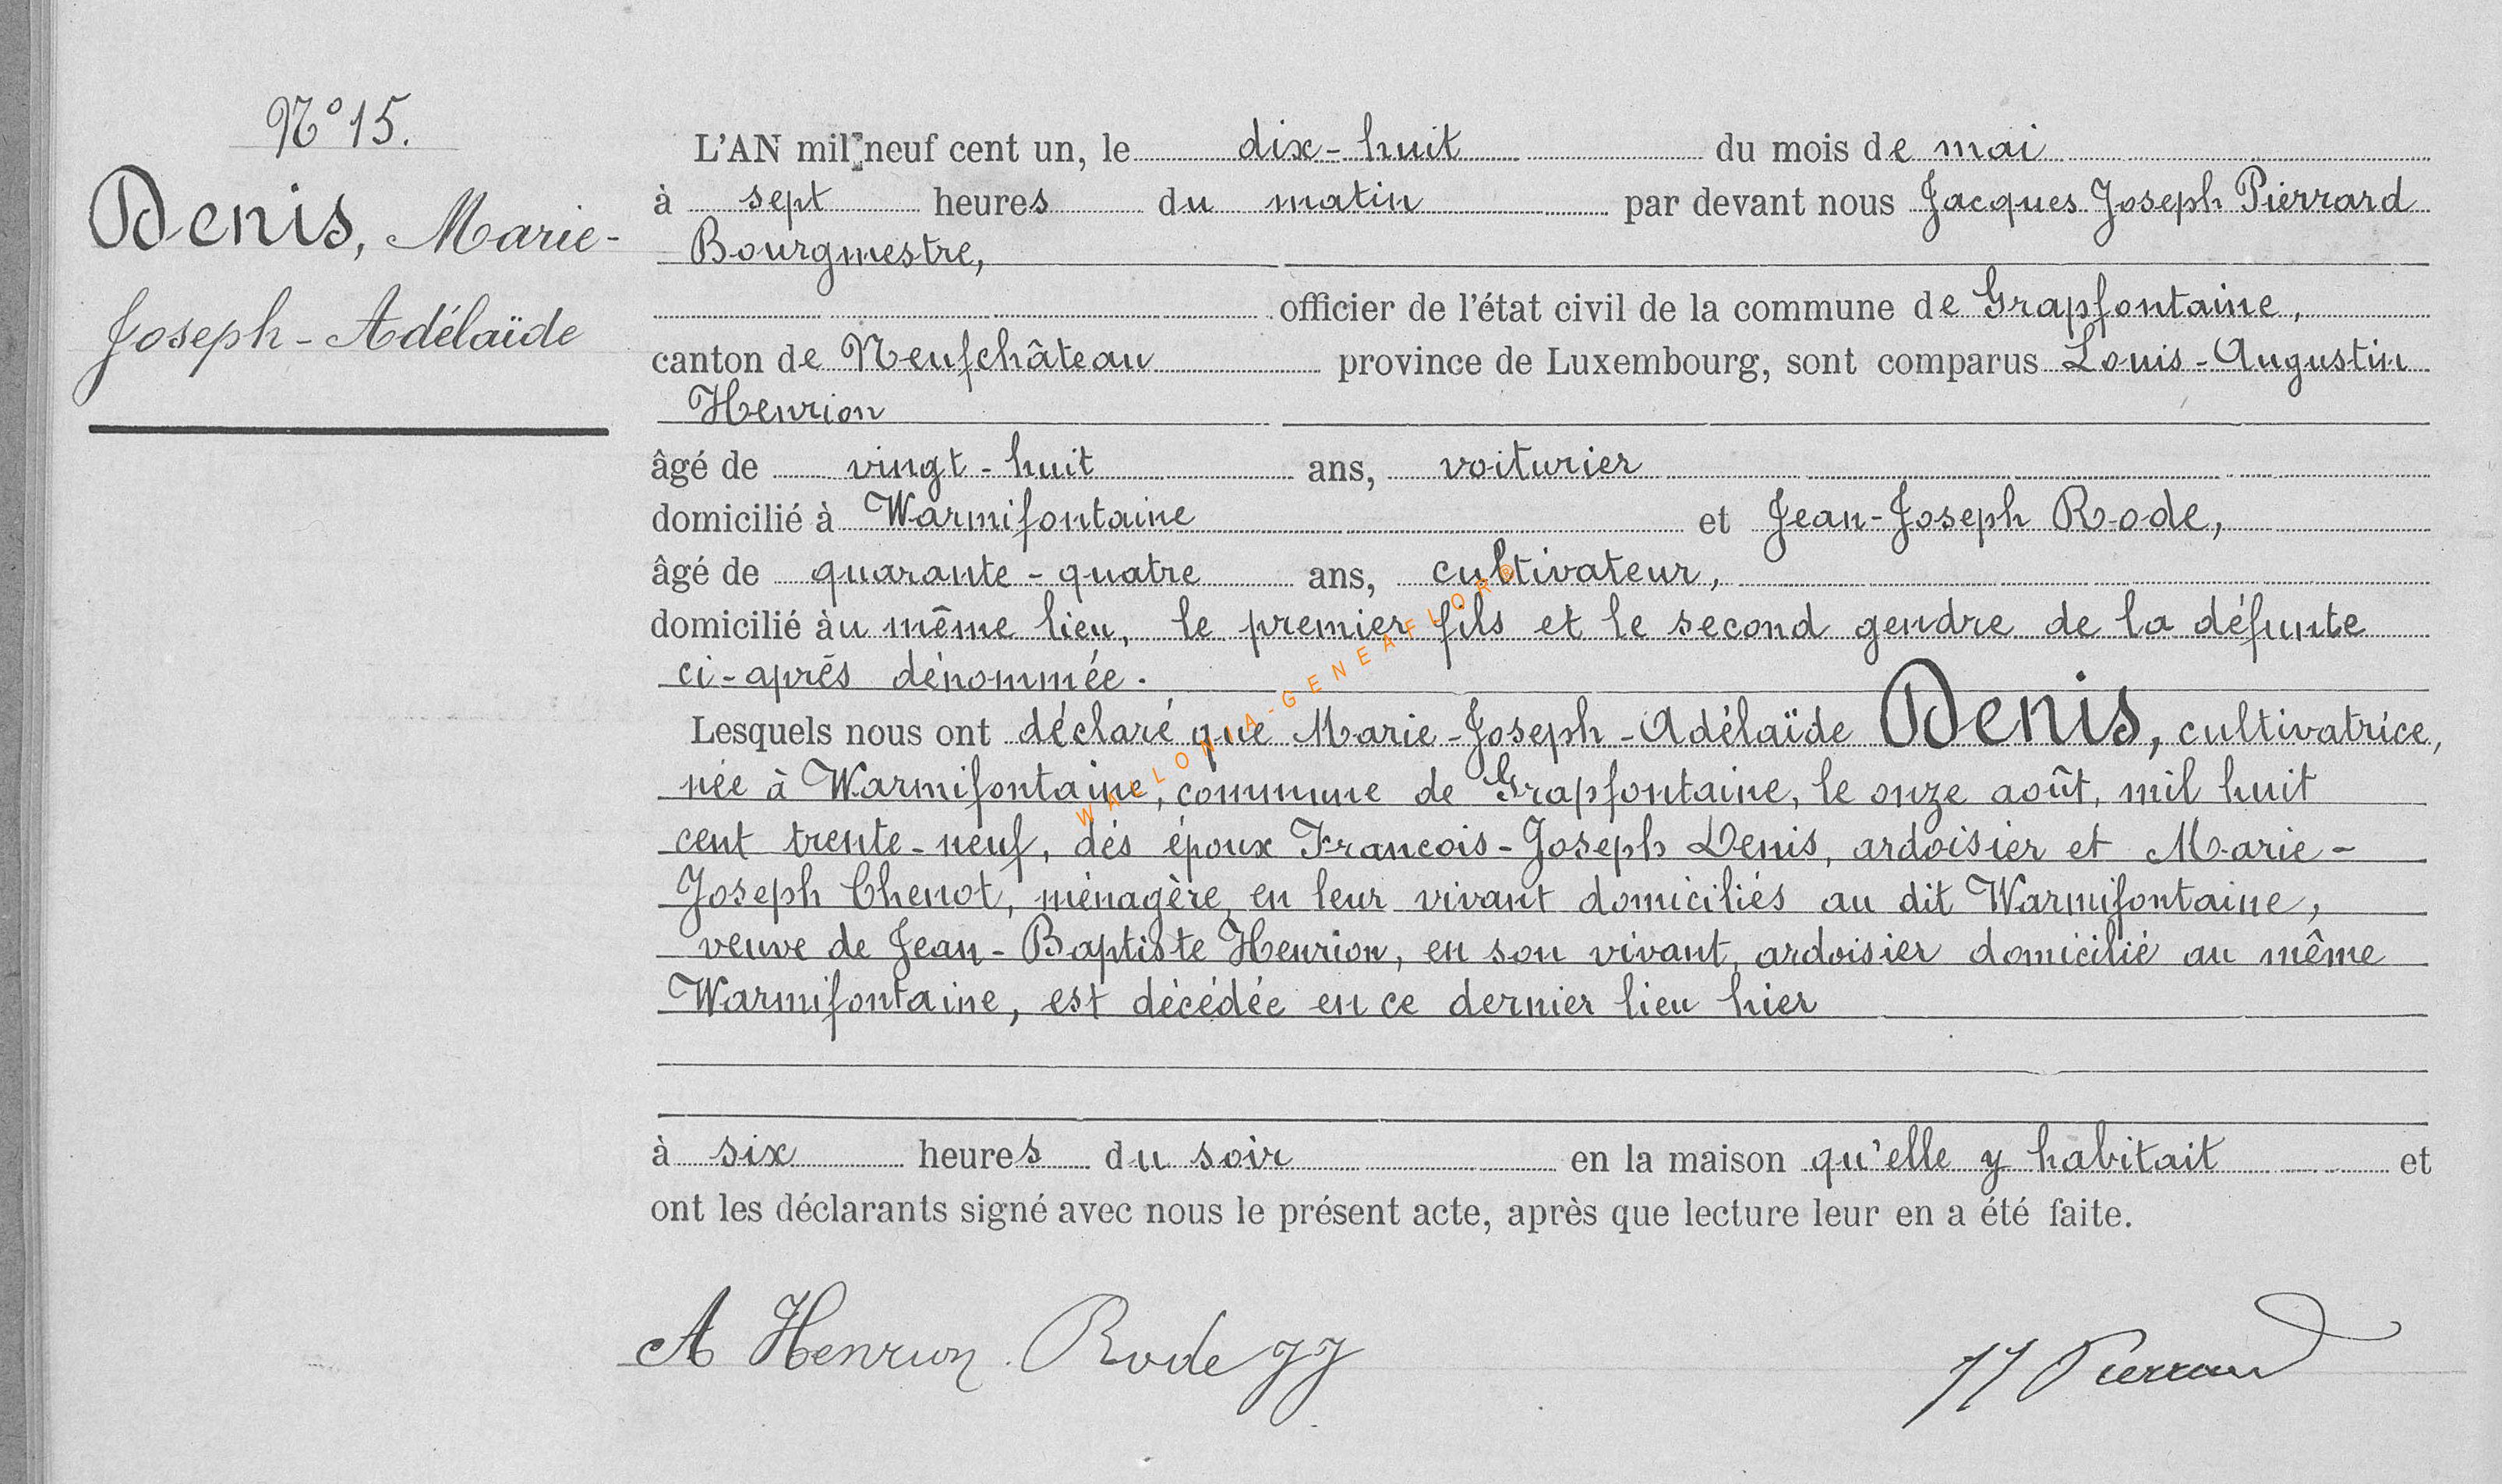 N° 15.
Denis, Marie-
Joseph-Adélaïde
L'AN mil neuf cent un, le dix-huit du mois de mai
à sept heures du matin par devant nous Jacques Joseph Pierrard
Bourgmestre,
officier de l'état civil de la commune de Grapfontaine,
canton de Neufchâteau province de Luxembourg, sont comparus Louis-Augustin
Henrion
âgé de vingt-huit ans, voiturier
domicilié à Warmifontaine et Jean-Joseph Rode,
âgé de quarante-quatre ans, cultivateur,
domicilié àu même lieu, le premier fils et le second gendre de la défunte
ci-après dénommée.
Lesquels nous ont déclaré que Marie-Joseph-Adélaïde Denis, cultivatrice,
née à Warmifontaine, commune de Grapfontaine, le onze août, mil huit
cent trente-neuf, dés époux Francois-Joseph Denis, ardoisier et Marie-
Joseph Chenot, ménagère, en leur vivant domiciliés au dit Warmifontaine,
veuve de Jean-Baptiste Henrion, en son vivant, ardoisier domicilié au même
Warmifontaine, est décédée en ce dernier lieu hier
à six heures du soir en la maison qu'elle y habitait et
ont les déclarants signé avec nous le présent acte, après que lecture leur en a été faite.
A Henrion Rode JJ JJ Pierrard
WALLONIA-GENEAFLOR®